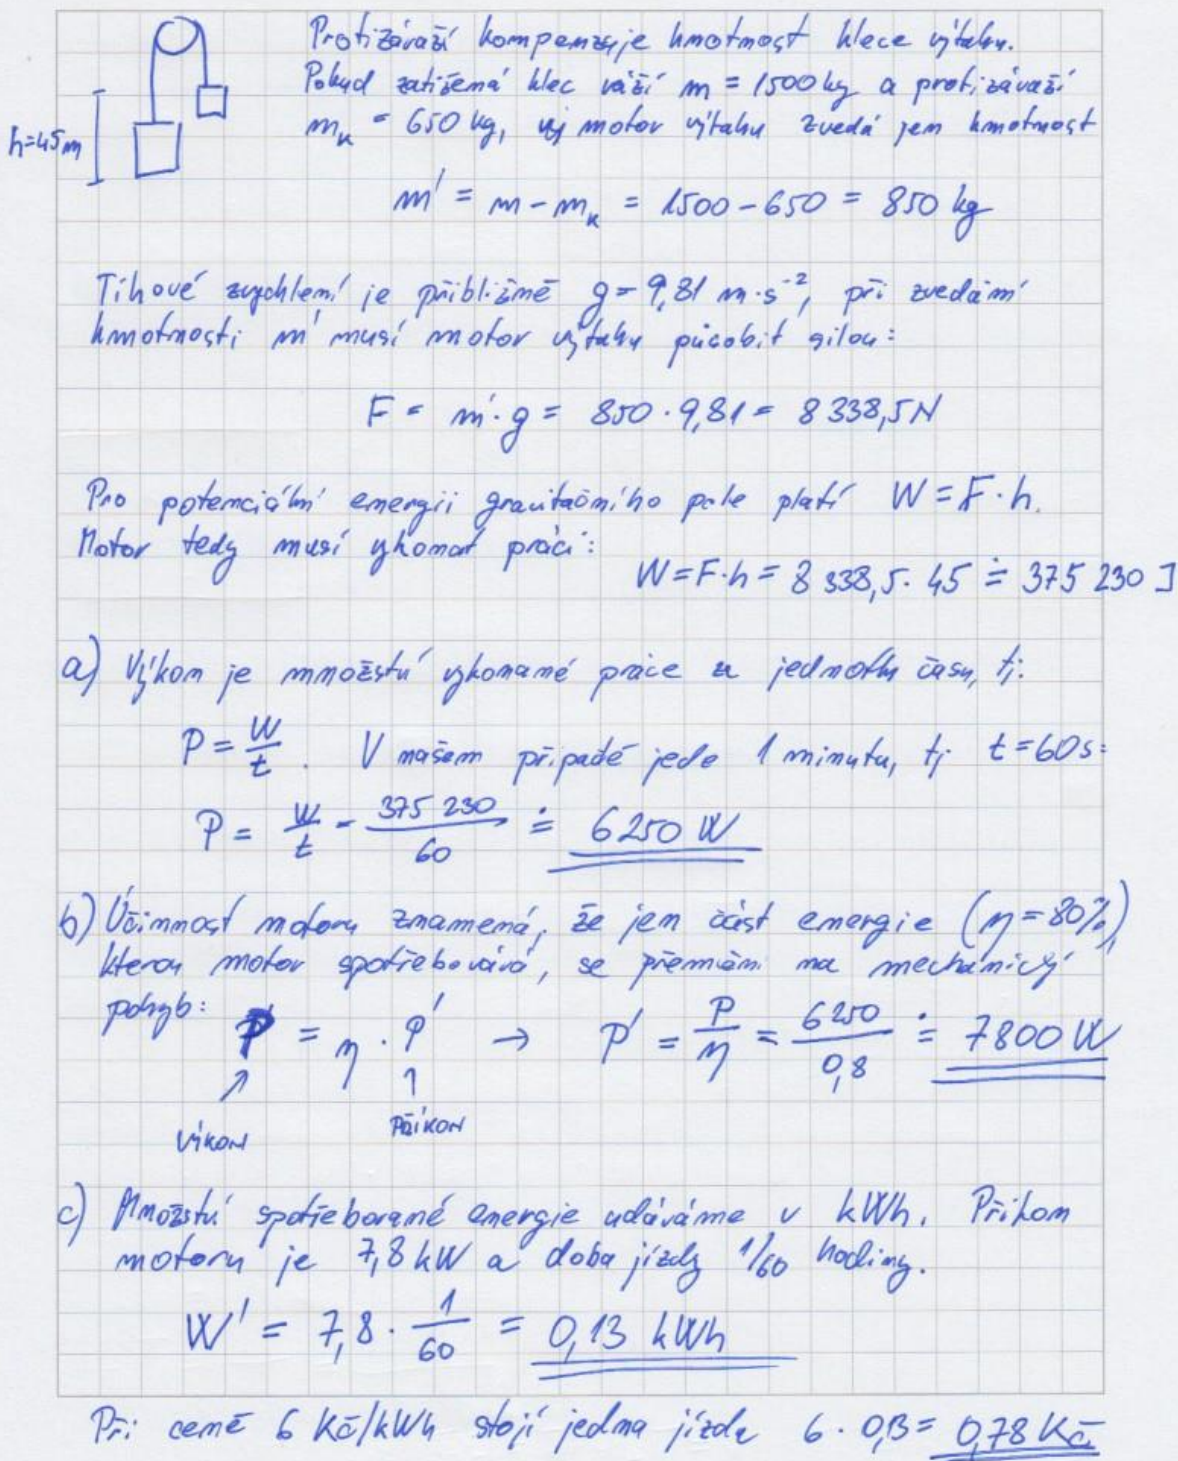 Protizávaží kompenzuje hmotnost klece výtahu.
Pokud zatížená klec váží m = 1500 kg a protizávaží
h=45m
m_k = 650 kg, motor výtahu zvedá jen hmotnost
m' = m - m_k = 1500 - 650 = 850 kg
Tíhové zrychlení je přibližně g = 9,81 m·s⁻², při zvedání
hmotnosti m' musí motor výtahu působit silou:
F = m'·g = 850 · 9,81 = 8 338,5 N
Pro potenciální energii gravitačního pole platí W = F·h.
Motor tedy musí vykonat práci:
W = F·h = 8 338,5 · 45 ≐ 375 230 J
a) Výkon je množství vykonané práce za jednotku času, tj:
P = W/t . V našem případě jede 1 minutu, tj t = 60 s:
P = W/t = 375 230/60 ≐ 6250 W
b) Účinnost motoru znamená, že jen část energie (η = 80%),
kterou motor spotřebovává, se přemění na mechanický
pohyb: P = η · P' → P' = P/η = 6250/0,8 ≐ 7800 W
VÝKON PŘÍKON
c) Množství spotřebované energie udáváme v kWh. Příkon
motoru je 7,8 kW a doba jízdy 1/60 hodiny.
W' = 7,8 · 1/60 = 0,13 kWh
Při ceně 6 Kč/kWh stojí jedna jízda 6 · 0,13 = 0,78 Kč